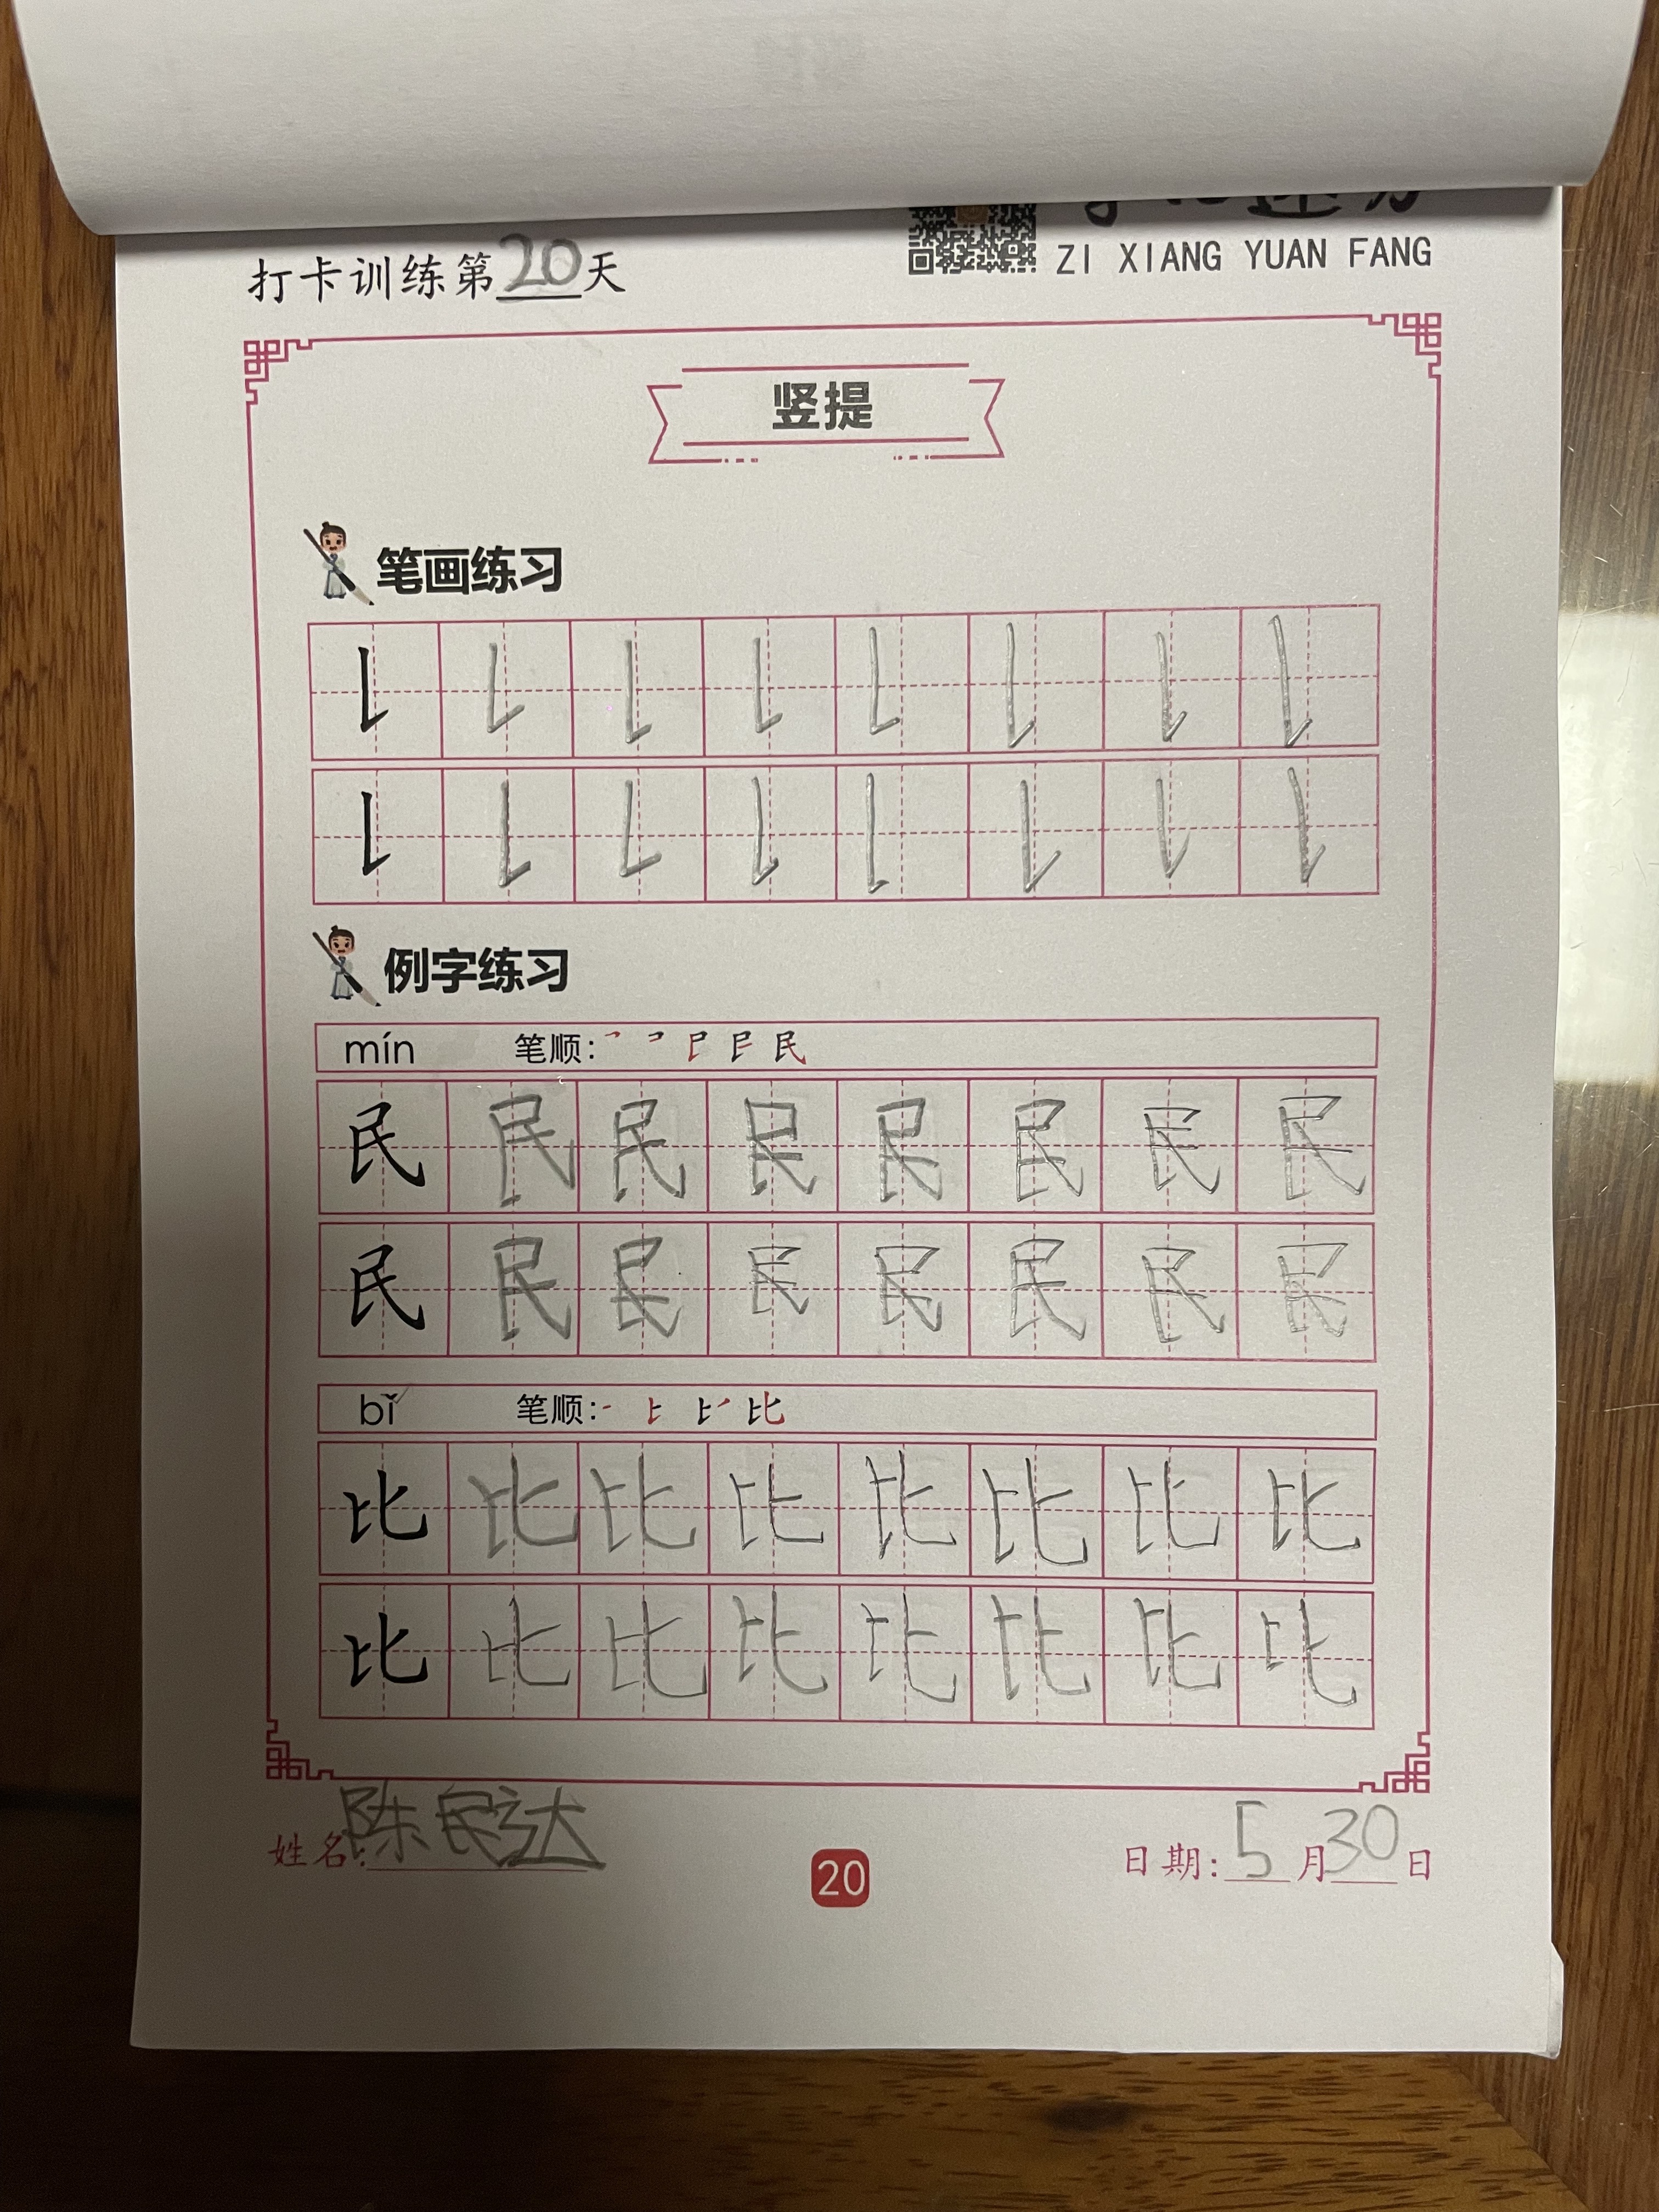 打卡训练第20天
ZI XIANG YUAN FANG
竖提
笔画练习
例字练习
mín 笔顺:
民 民 民 民 民 民 民 民
民 民 民 民 民 民 民 民
bǐ 笔顺:
比 比 比 比 比 比 比 比
比 比 比 比 比 比 比 比
姓名:陈民达
20
日期:5月30日